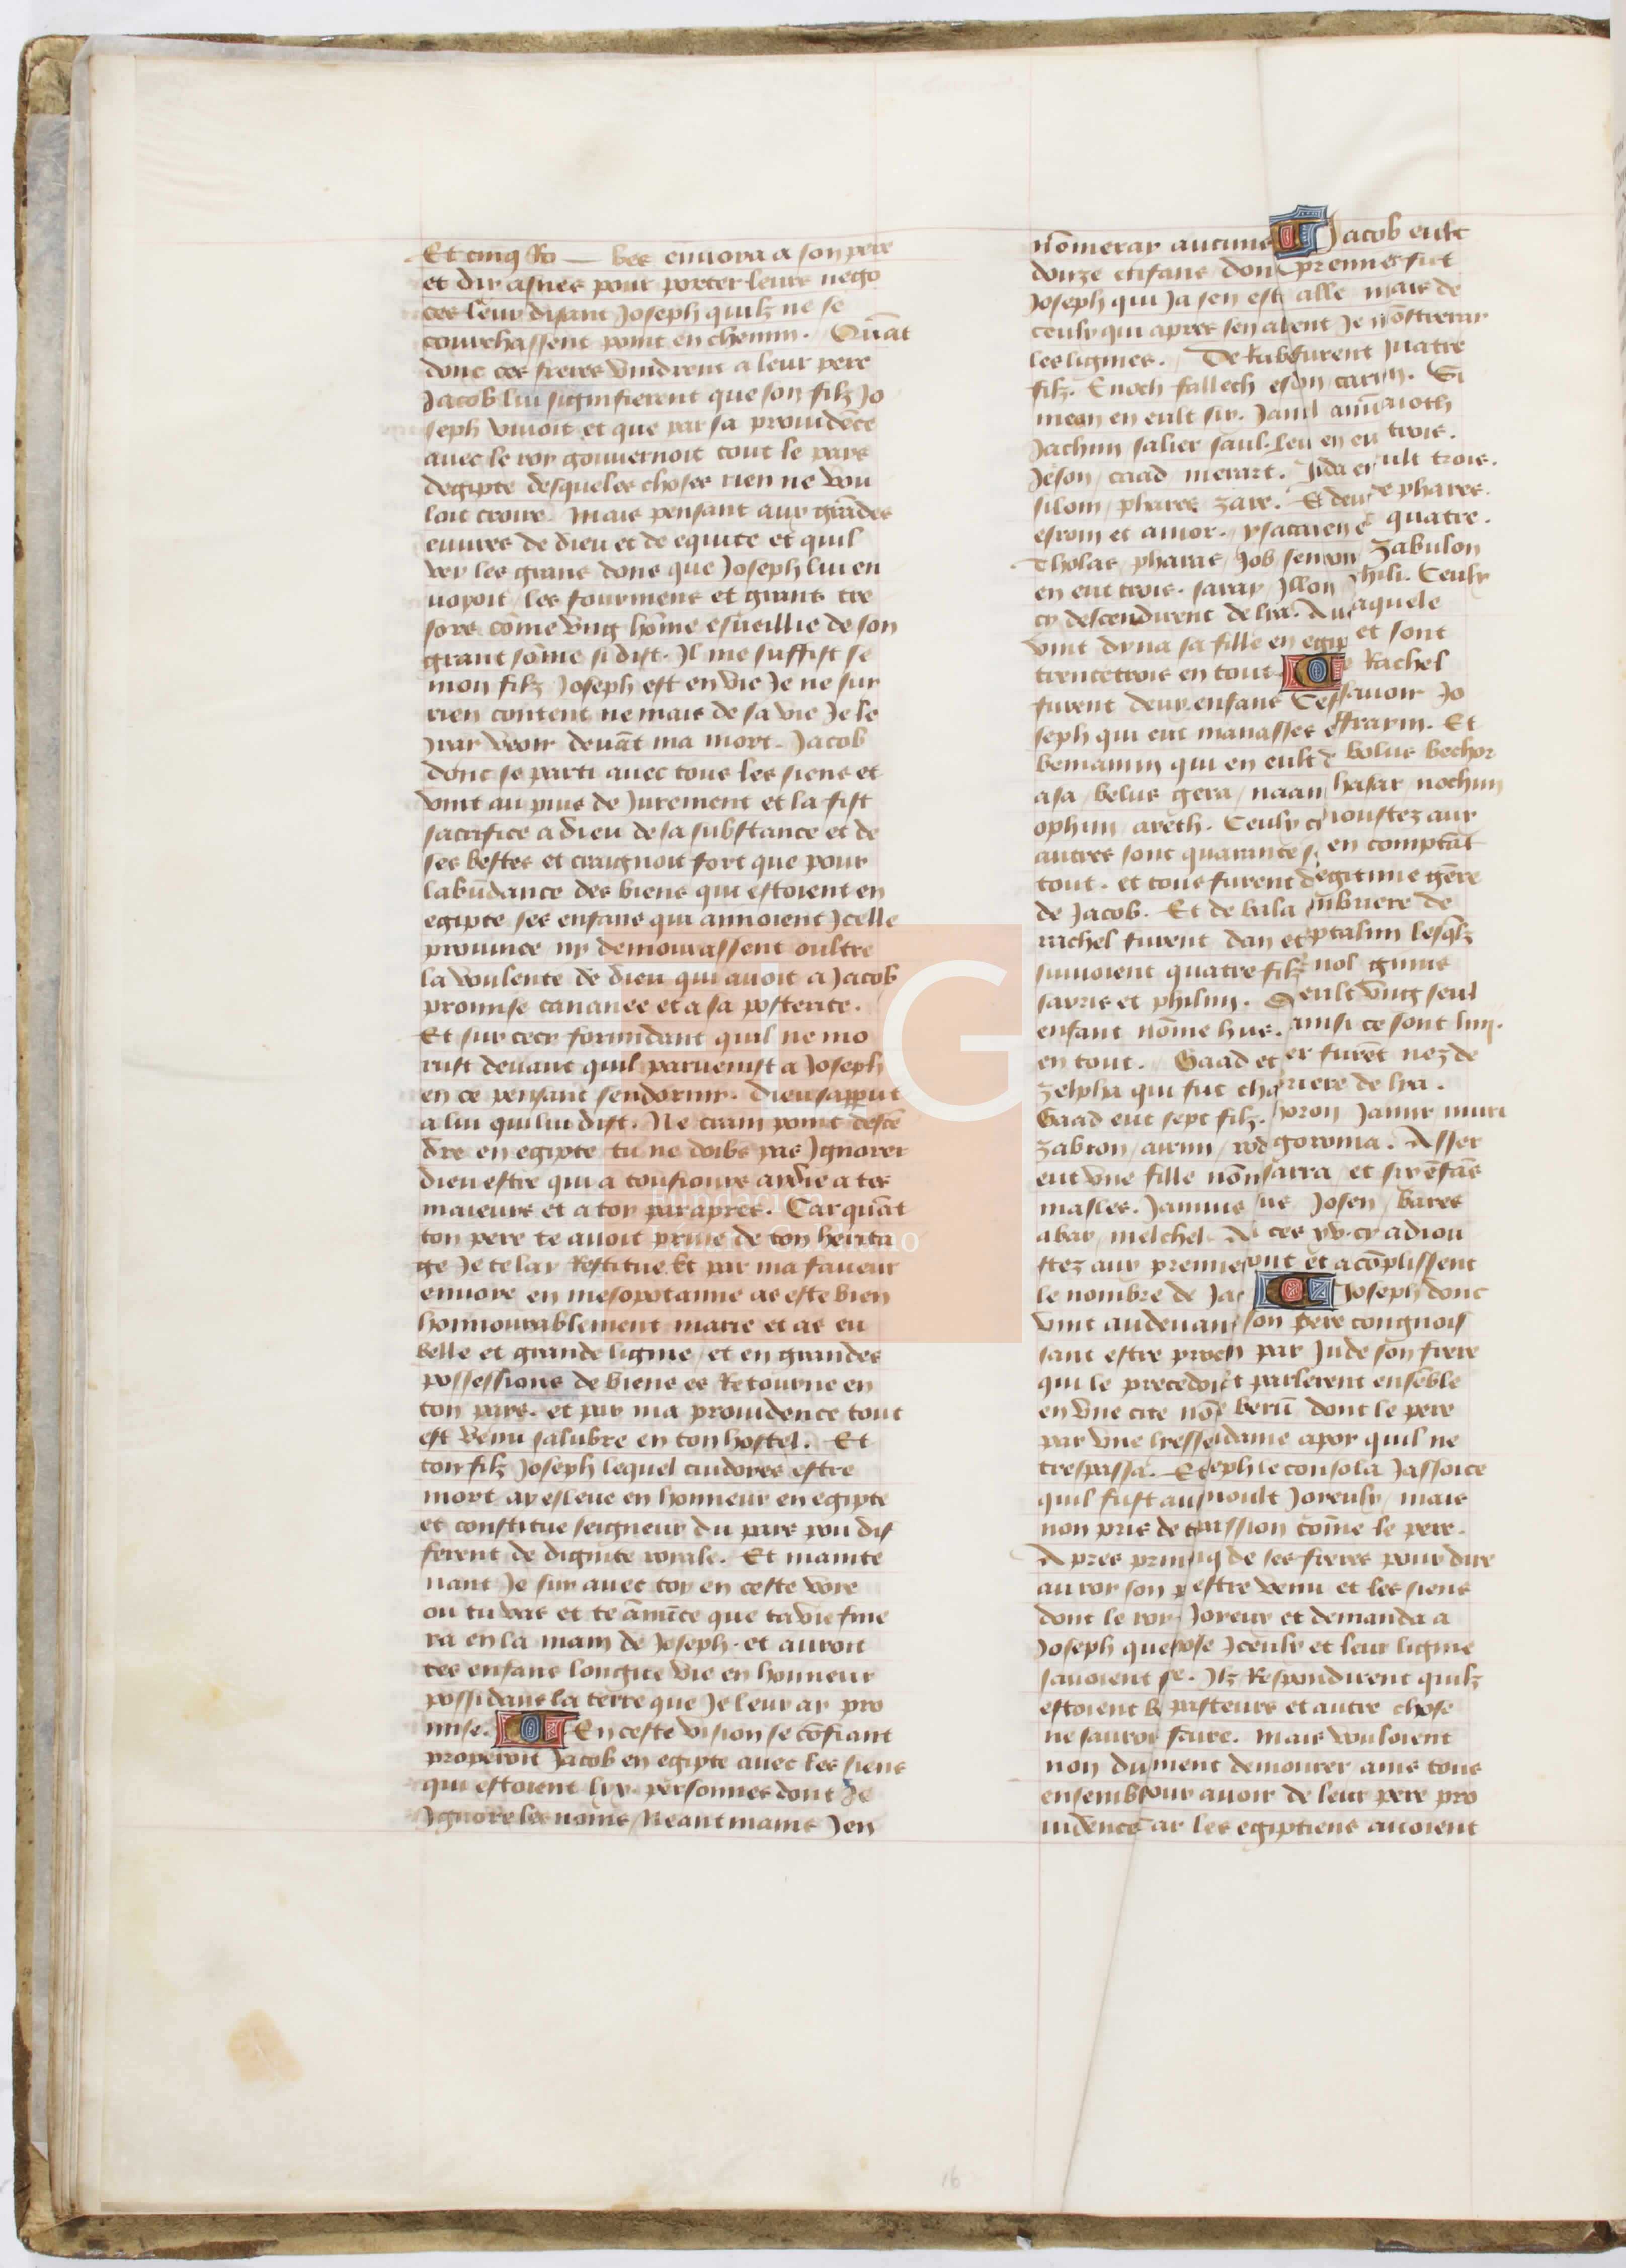 Et cinq Ro — bes enuoya a son pere
et dix asnes pour porter leurs nego
ces leur disant Joseph quilz ne se
courchassent point en chemin. Quāt
donc ces freres vindrent a leur pere
Jacob lui signifierent que son filz Jo
seph viuoit et que par sa prouidēce
auec le roy gouuernoit tout le pays
degipte desqueles choses rien ne vou
loit croire. Mais pensant aux grādes
euures de dieu et de equite et quil
vey les grans dons que Joseph lui en
uoyoit / les fourmens et grans tre
sors cōme vng hōme esueillie de son
grant sōme si dist. Il me suffist se
mon filz Joseph est en vie Je ne suy
rien content ne mais de sa vie Je le
yray veoir deuāt ma mort. Jacob
donc se parti auec tous les siens et
vint au puis de Jurement et la fist
sacrifice a dieu de sa substance et de
ses bestes et craignoit fort que pour
labūdance des biens qui estoient en
egipte ses enfans qui amoient Jcelle
prouince ny demourassent oultre
la voulente de dieu qui auoit a Jacob
promise cananee et a sa posterite.
Et sur cecy formidant quil ne mo
rust deuant quil paruenist a Joseph
en ce pensant sendormy. Dieu sapparut
a lui qui lui dist. Ne crain point descē
dre en egipte tu ne doibs pas Jgnorer
dieu estre qui a tousiours aydie a tes
maieurs et a toy par apres. Car quāt
ton pere te auoit priue de ton herita
ge Je te lay Restitue Et par ma faueur
enuoye en mesopotamie as este bien
honnourablement marie et as eu
belle et grande lignie / et en grandes
possessions de biens es Retourne en
ton pays. et par ma prouidence tout
est venu salubre en ton hostel. Et
ton filz Joseph lequel cuidoyes estre
mort ay esleue en honneur en egipte
et constitue seigneur du pays pou dif
ferent de dignite royale. Et mainte
nant Je suy auec toy en ceste voye
ou tu vas et te ānūce que ta vie fine
ra en la main de Joseph. et auront
tes enfans longue vie en honneur
possidans la terre que Je leur ay pro
mise. En ceste vision se cōfiant
properoit Jacob en egipte auec les siens
qui estoient lxx. personnes dont Je
Jgnore les noms / Neantmains Jen
nōmeray aucuns Jacob eult
douze enfans / don premier fut
Joseph qui Ja sen est alle mais de
ceulx qui apres sen alent Je mōstreray
les lignies. De furent quatre
filz. Enoch fallech Si
meon en eult six. Jamil
Jachim salier saul. Leui en eu trois.
Jeson / caad merari. Juda en ult trois.
silom / phares zare. Et de phares.
esrom et amor. quatre.
Tholas pharas / Job Zabulon
en eut trois. saray Jllon Ceulx
cy descendirent de lya. aquele
vint dyna sa fille en egip et sont
trentetrois en tout Rachel
furent deux enfans Cest sauoir Jo
seph qui eut manasses effraym. Et
beniamin qui en eult bolus bechor
asa / belus gera / naan hasar nochim
ophim areth. Ceulx ci ioustez aux
autres sont quarante en comptāt
tout. et tous furent gēre
de Jacob. Et de bala de
rachel furent dan et ptalim lesqlz
suiuoient quatre filz nol gunis
sayris et philim. eult vng seul
enfant nōme hus. ainsi ce sont
en tout. Gaad et er furēt nez de
zelpha qui fut cha riere de lya.
Gaad eut sept filz. Jamir muri
zabron / goroma. Asser
eut vne fille nōm sarra / et six ēfās
masles. Jamnis Josen / bares
abar / melchel. ces xv. cy adiou
stez aux premie ont et acōplissent
le nombre de Jac Joseph donc
vint audeuant son pere congnois
sant estre par Jude son frere
qui le precedoit parlerent ensēble
en vne cite nōe berū dont le pere
par vne apoy quil ne
trespassa. Et eph le consola Jassoice
quil fust aus moult Joyeulx / mais
non pris de passion cōme le pere.
Apres print de ses freres pour dire
au roy son estre venu et les siens
dont le roy Joyeux et demanda a
Joseph que Jceulx et leur lignie
sauoient Ilz Respondirent quilz
estoient pasteurs et autre chose
ne sauroi Mais vouloient
non du ment demourer ains tous
ensemb our auoir de leur pere pro
uidence ar les egiptiens auoient
16
Fundación
Lázaro Galdiano